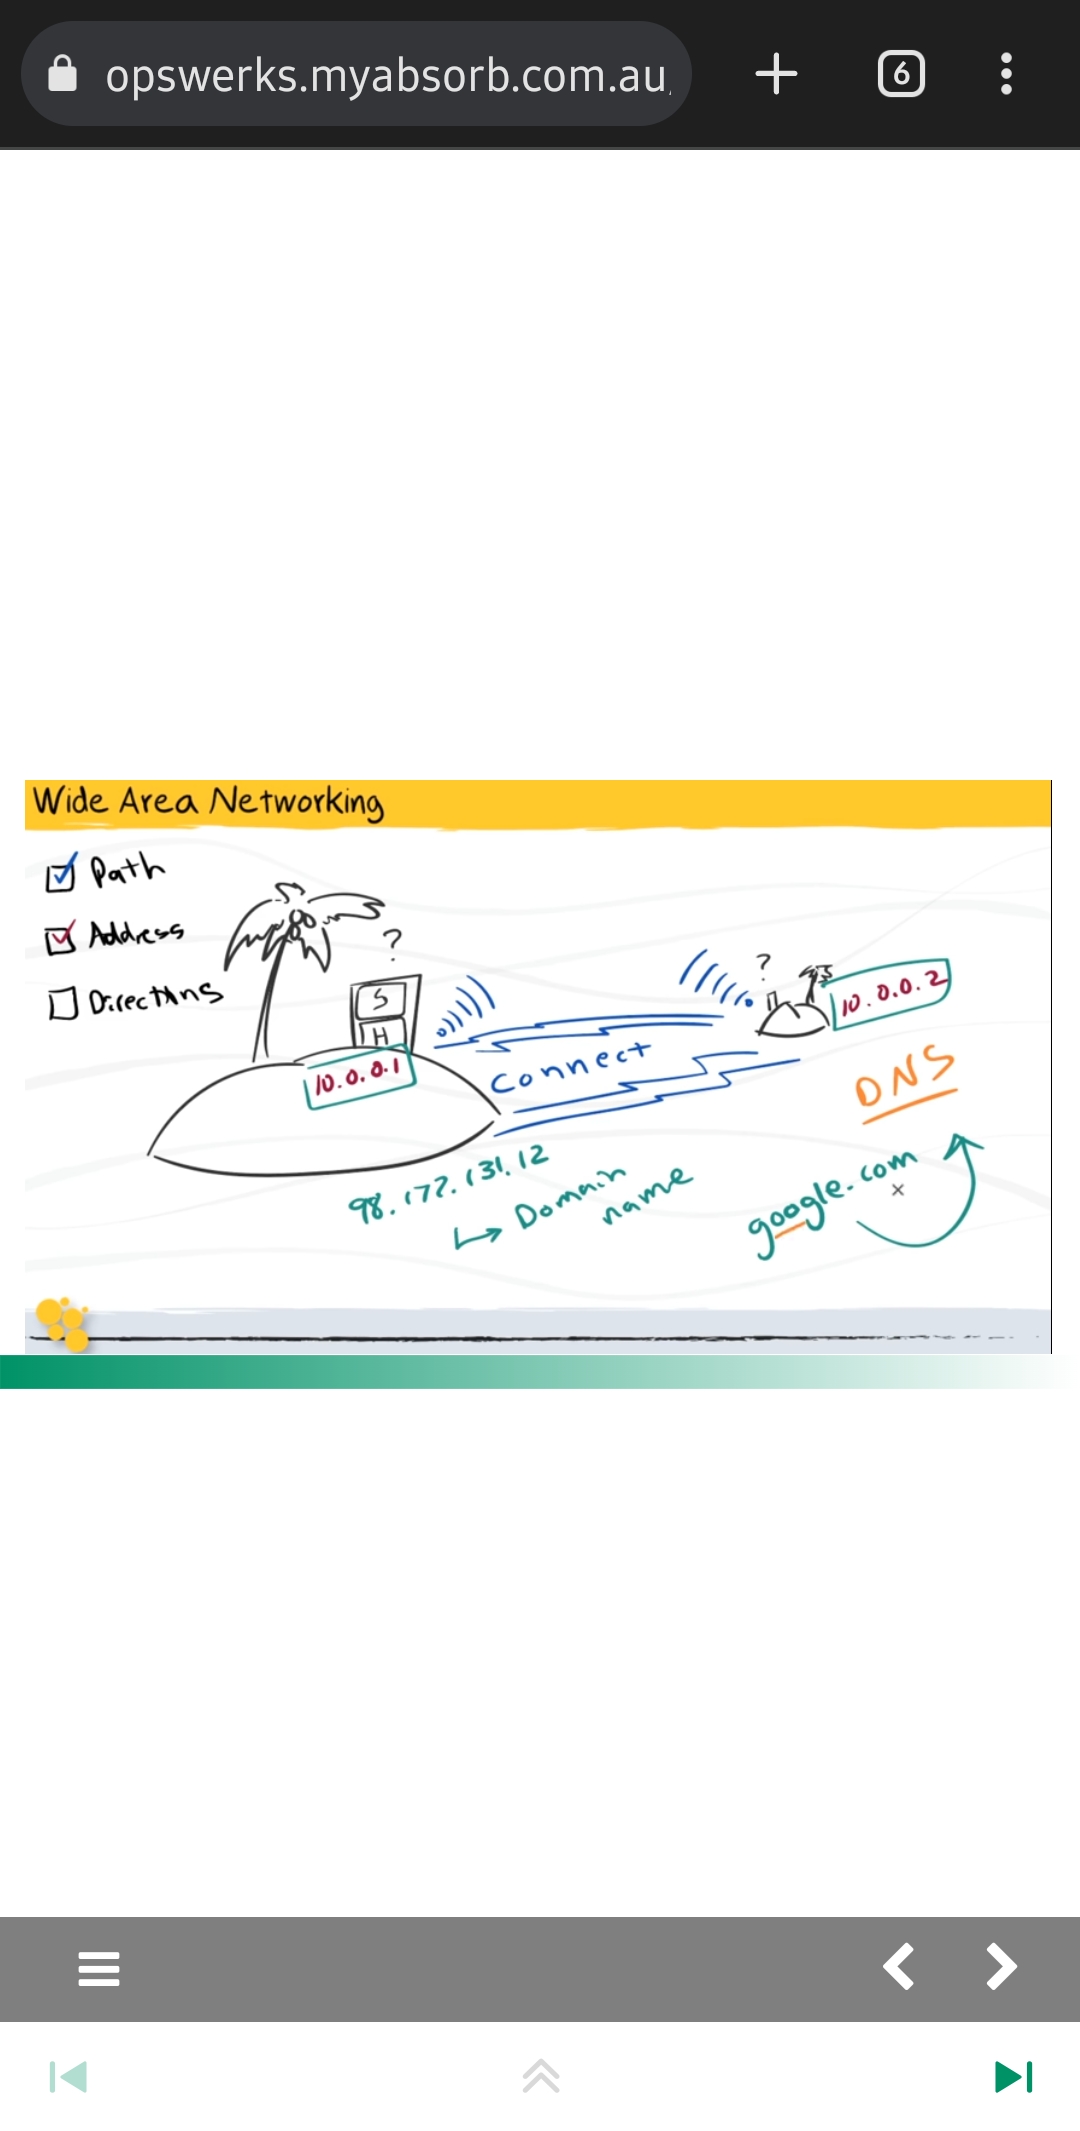 opswerks.myabsorb.com.au
6
Wide Area Networking
Path
Address
Directions
?
S
H
10.0.0.1
?
10.0.0.2
Connect
DNS
98.177.131.12
Domain
name
google.com
x